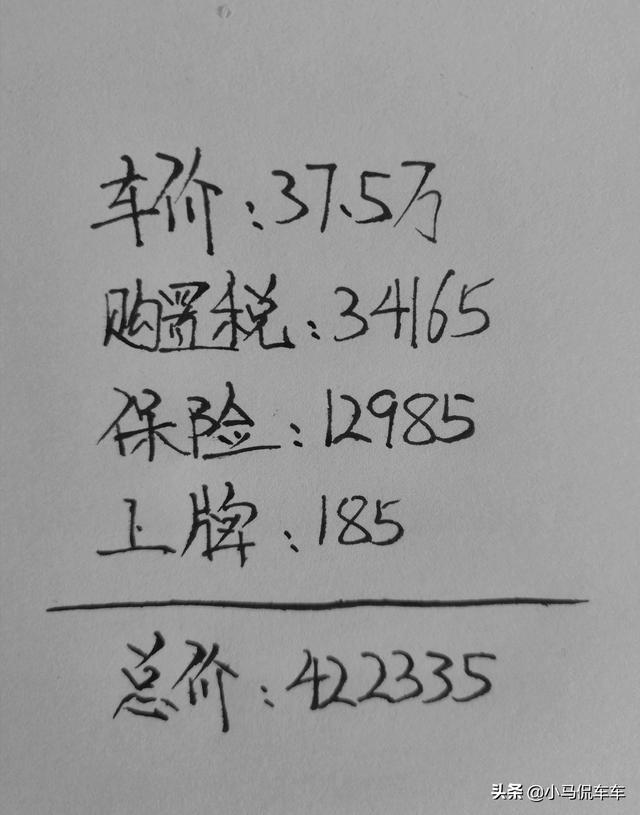 车价:37.5万
购置税:34165
保险:12985
上牌:185
总价:422335
头条 @小马侃车车